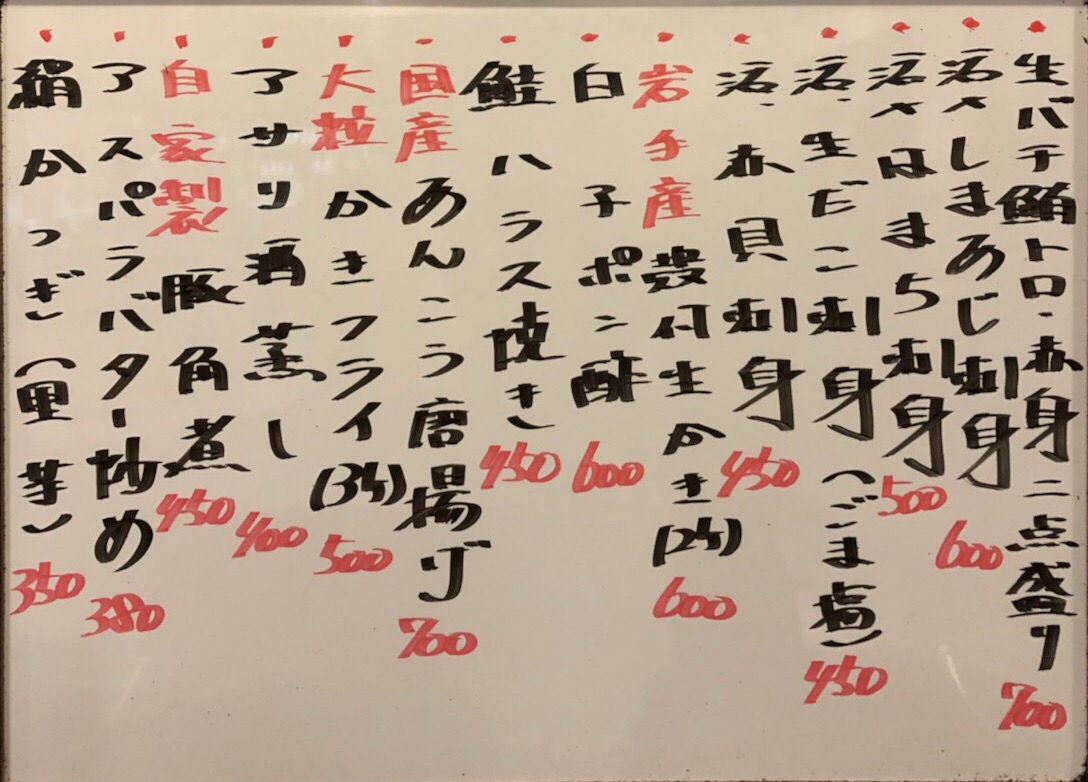 生バチ鮪トロ・赤身二点盛り 700
活〆しまあじ刺身 600
活〆はまち刺身 500
活・生だこ刺身(ごま塩) 450
活・赤貝刺身 450
岩手産殻付生かき(2ケ) 600
白子ポン酢 600
鮭ハラス焼き 450
国産あんこう唐揚げ 700
大粒かきフライ(3ケ) 500
アサリ酒蒸し 400
自家製豚角煮 450
アスパラバター炒め 380
絹かつぎ(里芋) 350